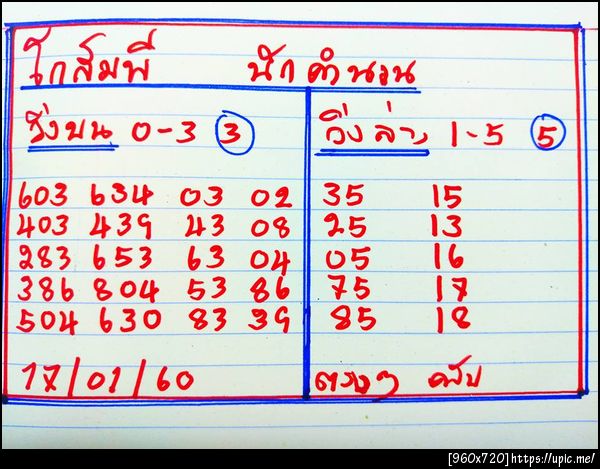 โกสัมพี นักคำนวน
วิ่งบน 0-3 3
603 634 03 02
403 439 43 08
283 653 63 04
386 804 53 86
504 630 83 39
17/01/60
วิ่งล่าง 1-5 5
35 15
25 13
05 16
75 17
85 18
ตรงๆ ครับ
[960x720]https://upic.me/